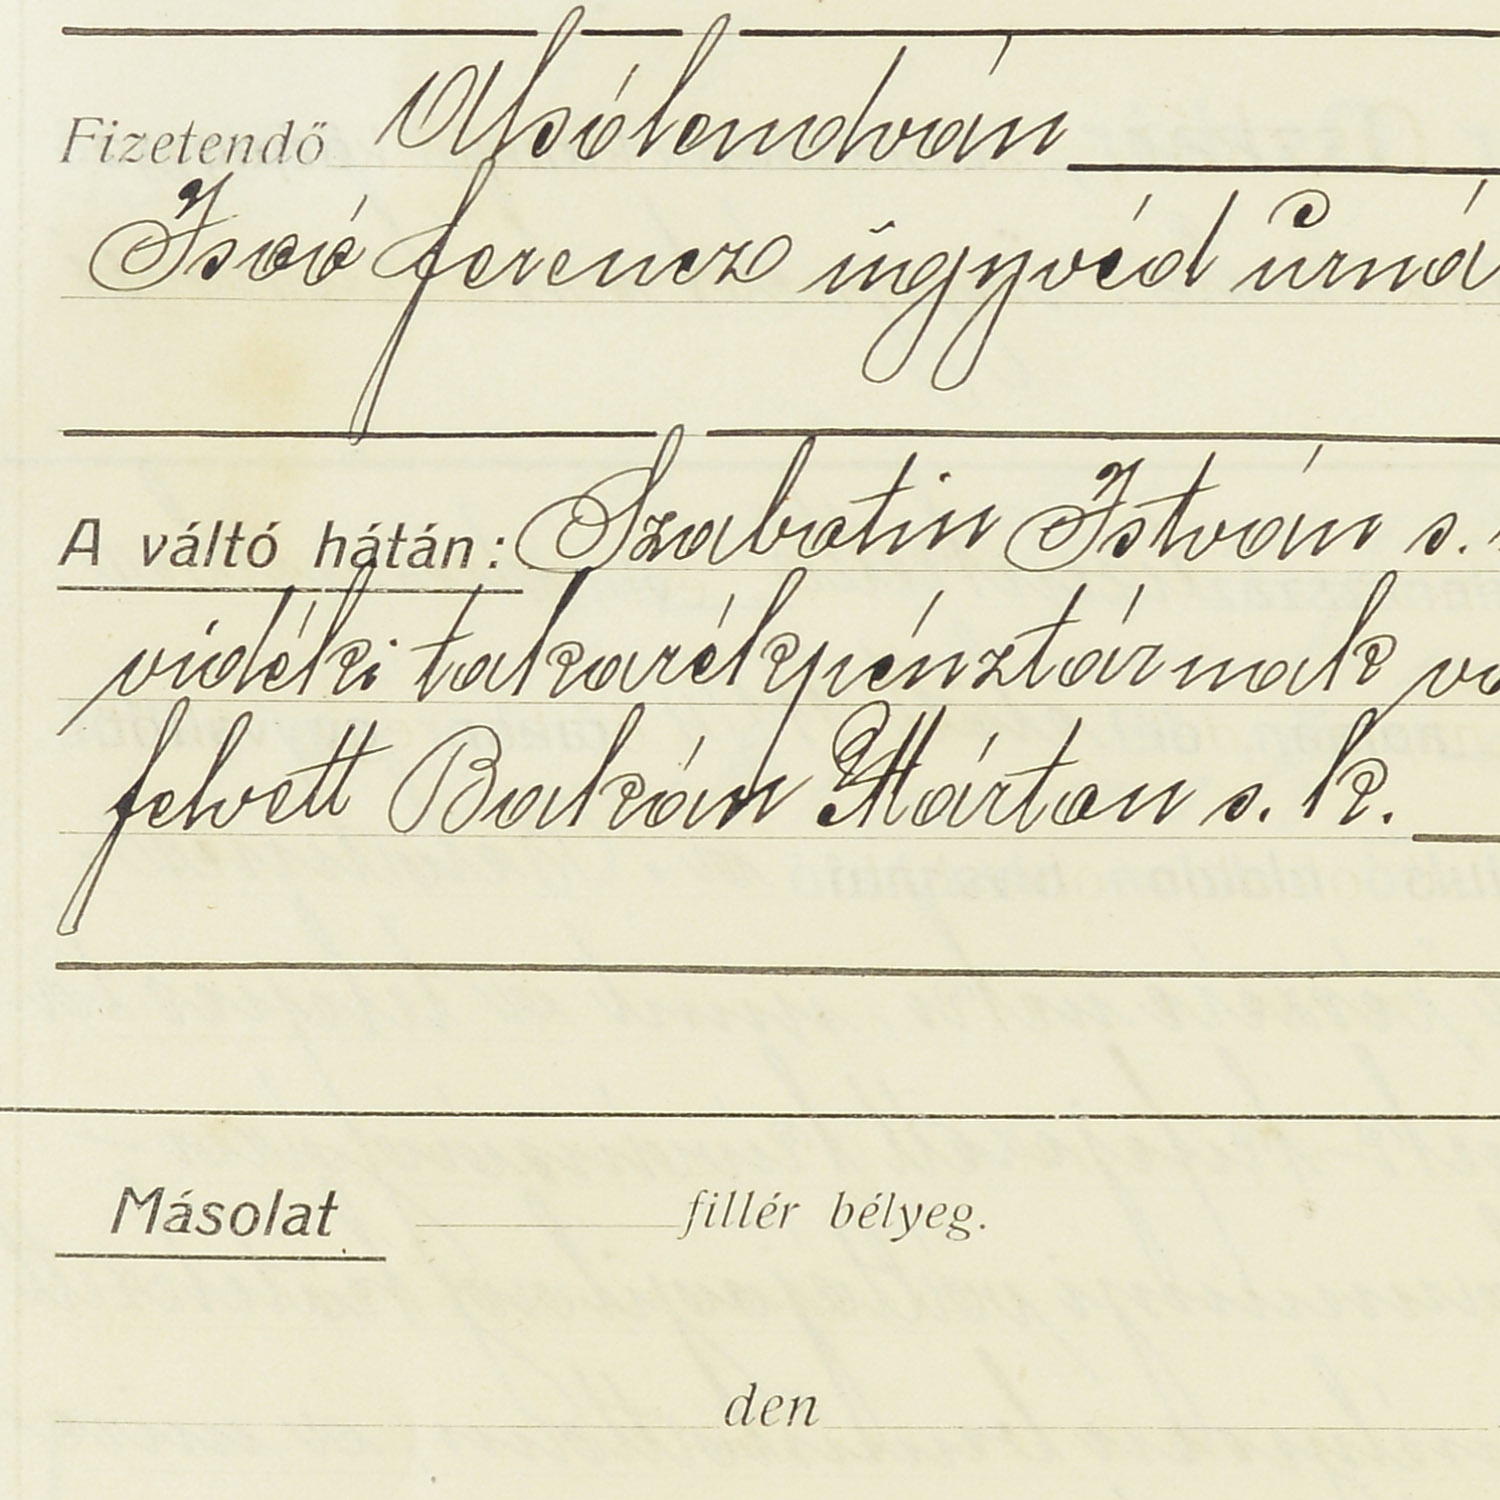 Fizetendő Alsólendván
Isoó ferencz ügyvéd úrná
A váltó hátán: Szabatin István s.
vidéki takarékpénztárnak
felvett Bakán Márton s. k.
Másolat fillér bélyeg.
den